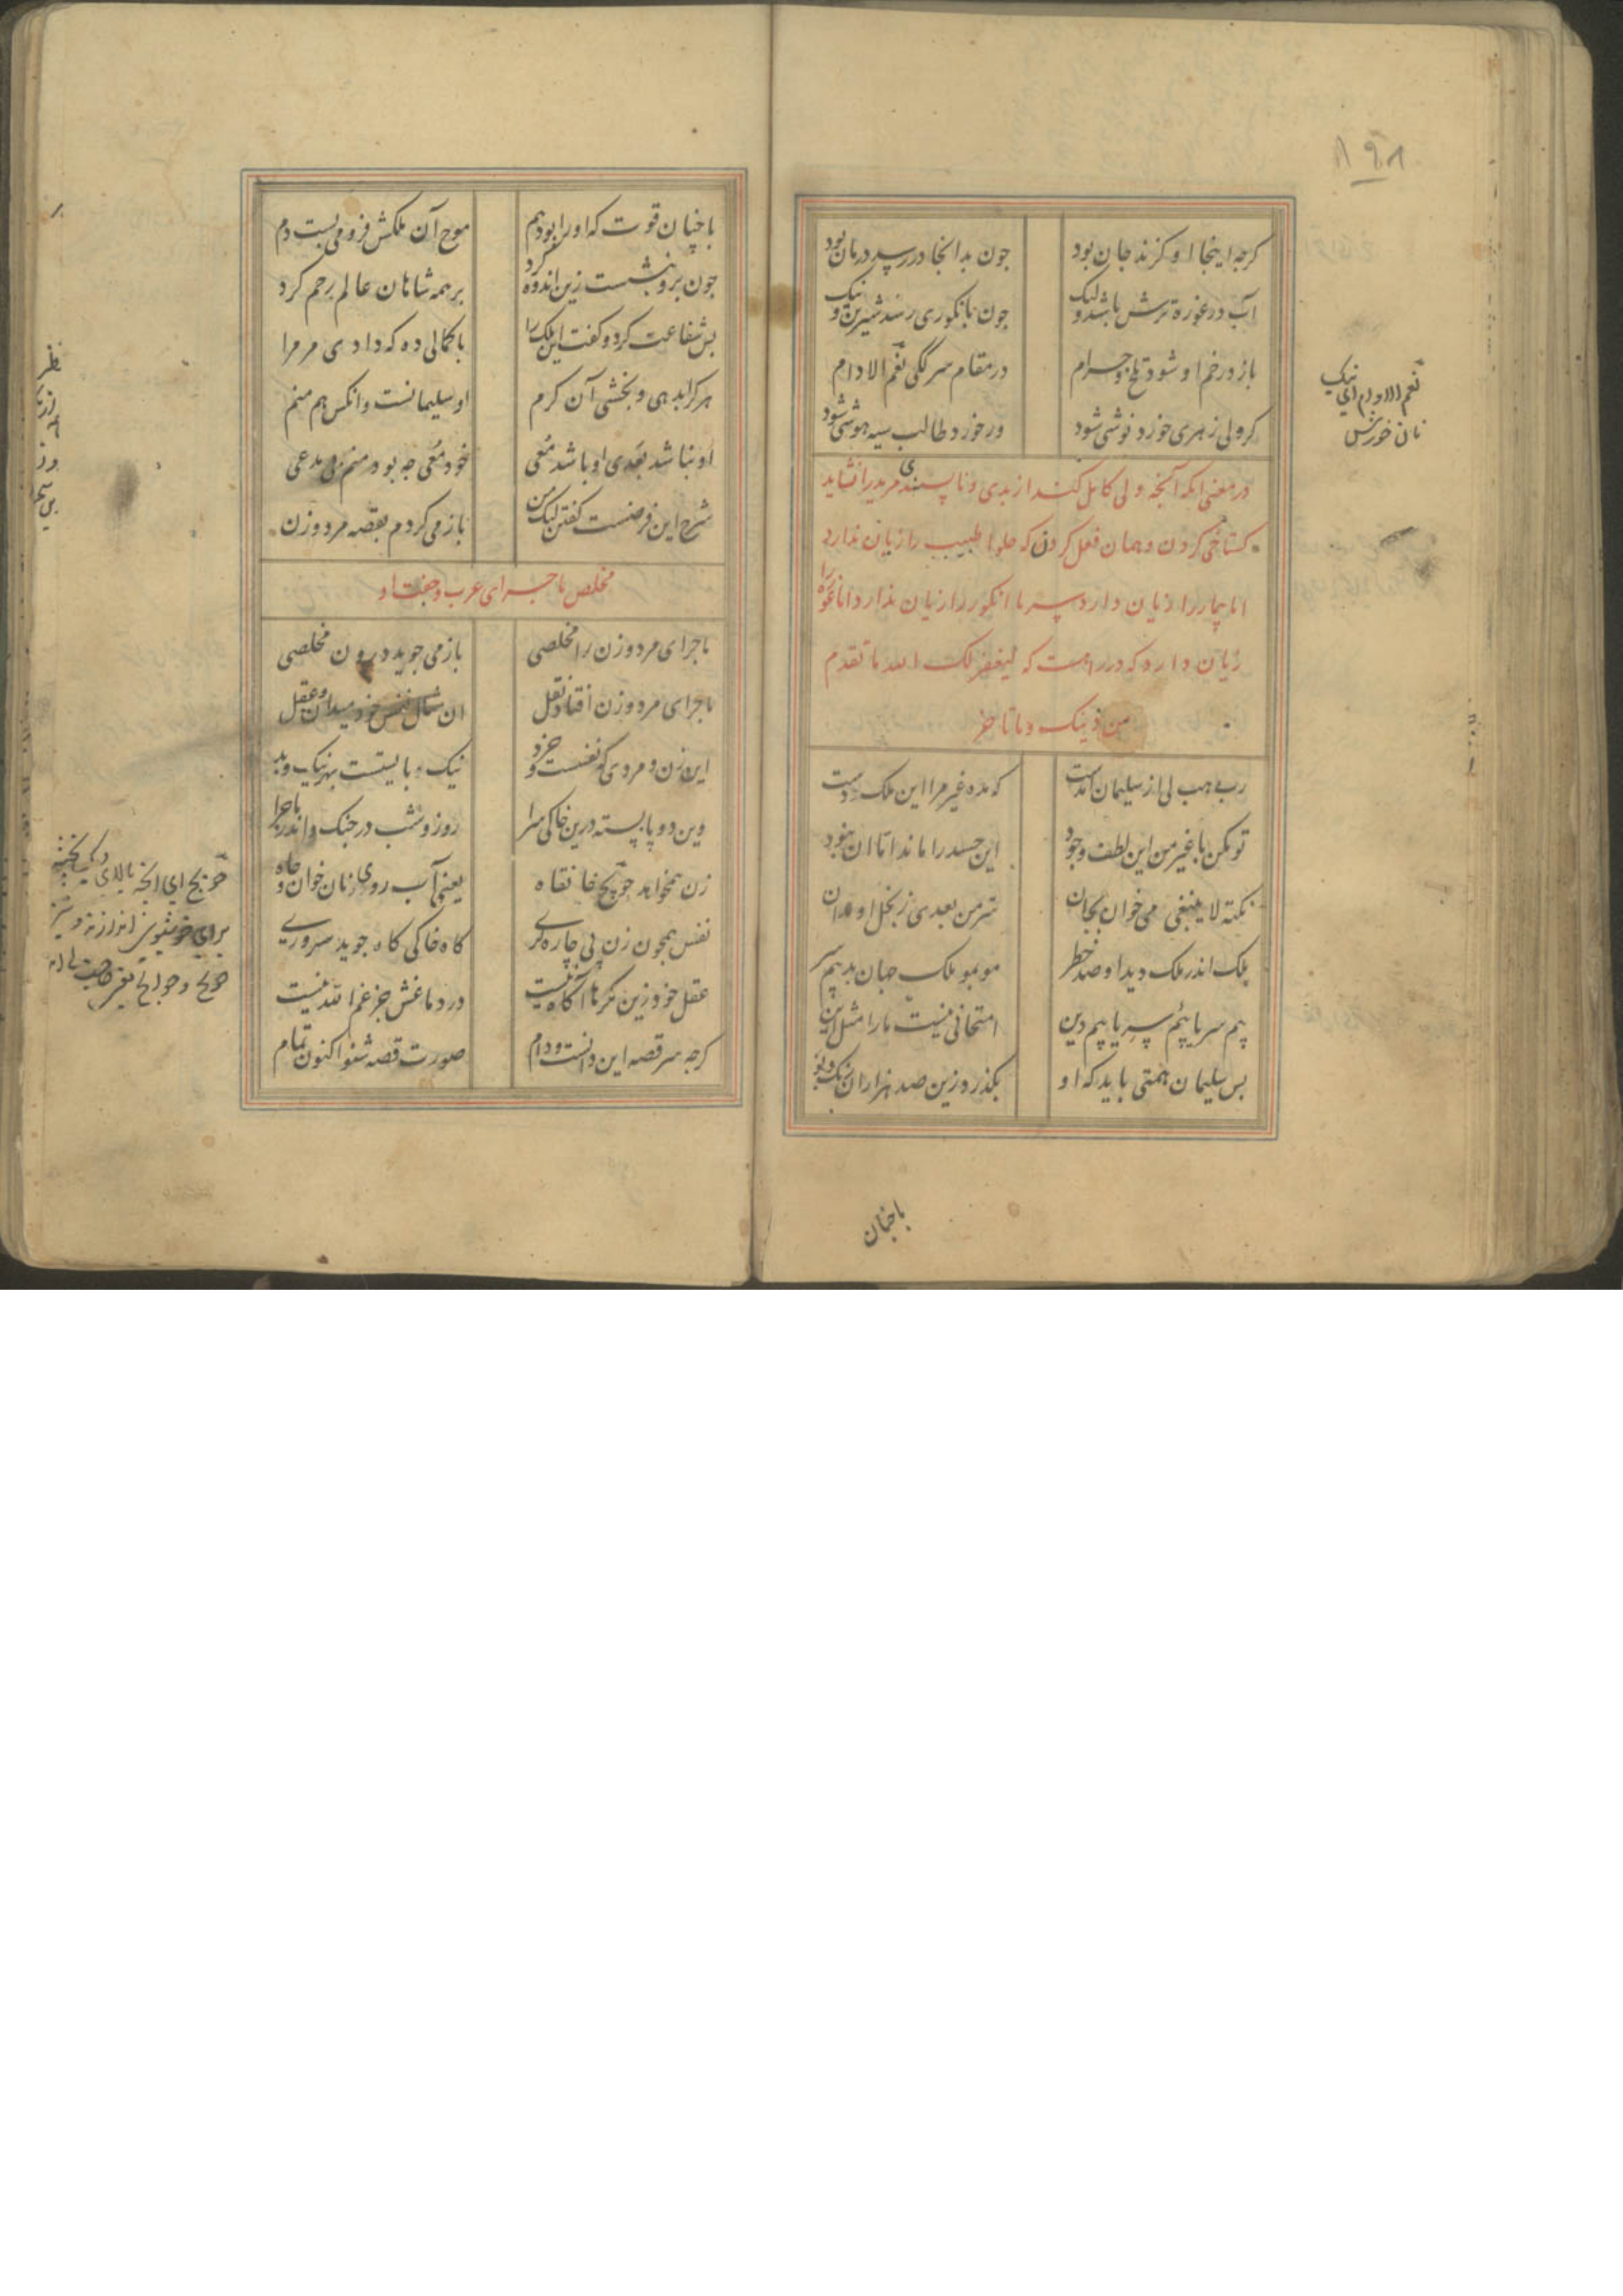 ۸۹۸
کرجه اینجا او کزند جان بود جون بدانجا در رسد درمان بود
آب در غوره ترش باشد ولیک جون بانکوری رسد شیرین و نیک
باز در خم او شود تلخ و حرام در مقام سرکگی نعم الادام
کر ولی زهری خورد نوشی شود ور خورد طالب سیه هوشی شود
نعم الادام ای نیک
نان خورش
در معنی انکه آنجه ولی کامل کند از بدی و ناپسندی مرید را نشاید
کستاخی کردن و همان فعل کردن که حلوا طبیب را زیان ندارد
اما بیمار را زیان دارد سرما انکور را زیان ندارد اما غوره را
زیان دارد که در راهست که لیغفر لک الله ما تقدم
من ذنبک وما تاخر
رب هب لی از سلیمان آمدست که مده غیر مرا این ملک و دست
تو مکن با غیر من این لطف وجود این حسد را ماند اما ان نبود
نکته لا ینبغی می خوان بجان سر من بعدی ز بخل او مدان
بلک اندر ملک دید او صد خطر موبمو ملک جهان بد بیم سر
بیم سر با بیم سر با بیم دین امتحانی نیست ما را مثل این
بس سلیمان همتی باید که او بکذرد زین صد هزاران رنک و بو
باجنان
باجنان قوت که او را بود هم موج آن ملکش فرو می بست دم
جون برو بنشست زین اندوه کرد بر همه شاهان عالم رحم کرد
بس شفاعت کرد و کفت این ملک را باکمالی ده که دادی مر مرا
هر کرا بدهی و بخشی آن کرم او سلیمانست وانکس هم منم
او نباشد بعدی او باشد معی خود معی جه بود منم بی مدعی
شرح این فرضست کفتن لیک من باز می کردم بقصه مرد و زن
مخلص ماجرای عرب و جفت او
ماجرای مرد و زن را مخلصی باز می جوید درون مخلصی
ماجرای مرد و زن افتاد نقل ان مثال نفس خود میدان و عقل
این زن و مردی که نفسست و خرد نیک بایستست بهر نیک و بد
وین دو پابسته درین خاکی سرا روز و شب در جنک و اندر ماجرا
زن همخواهد حویج خانقاه یعنی آب روی و نان و خوان و جاه
نفس همجون زن پی چاره کری کاه خاکی کاه جوید سروری
عقل خود زین فکرها آکاه نیست در دماغش جز غم الله نیست
کرجه سر قصه این دانست و دام صورت قصه شنو اکنون تمام
حویج ای انجه بالای دیک بخته
برای خوشبوی اندازند
حویج و حوایج
نظر